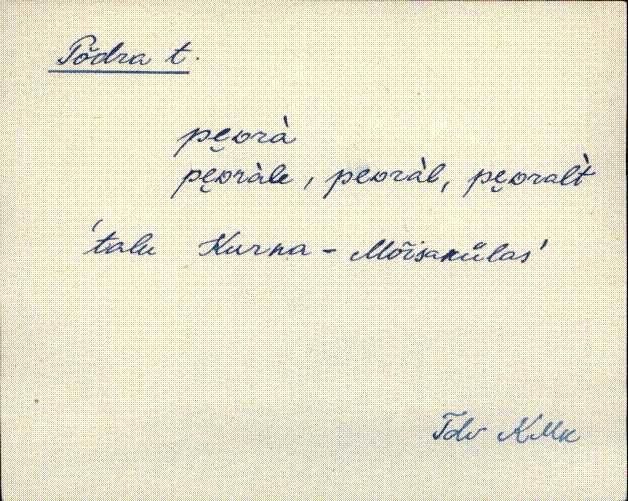 Põdra t.
pe̮orà
pe̮oràle, peoràl, pe̮oralt̀
'talu Kurna - Mõisakülas'
Tdv KMk